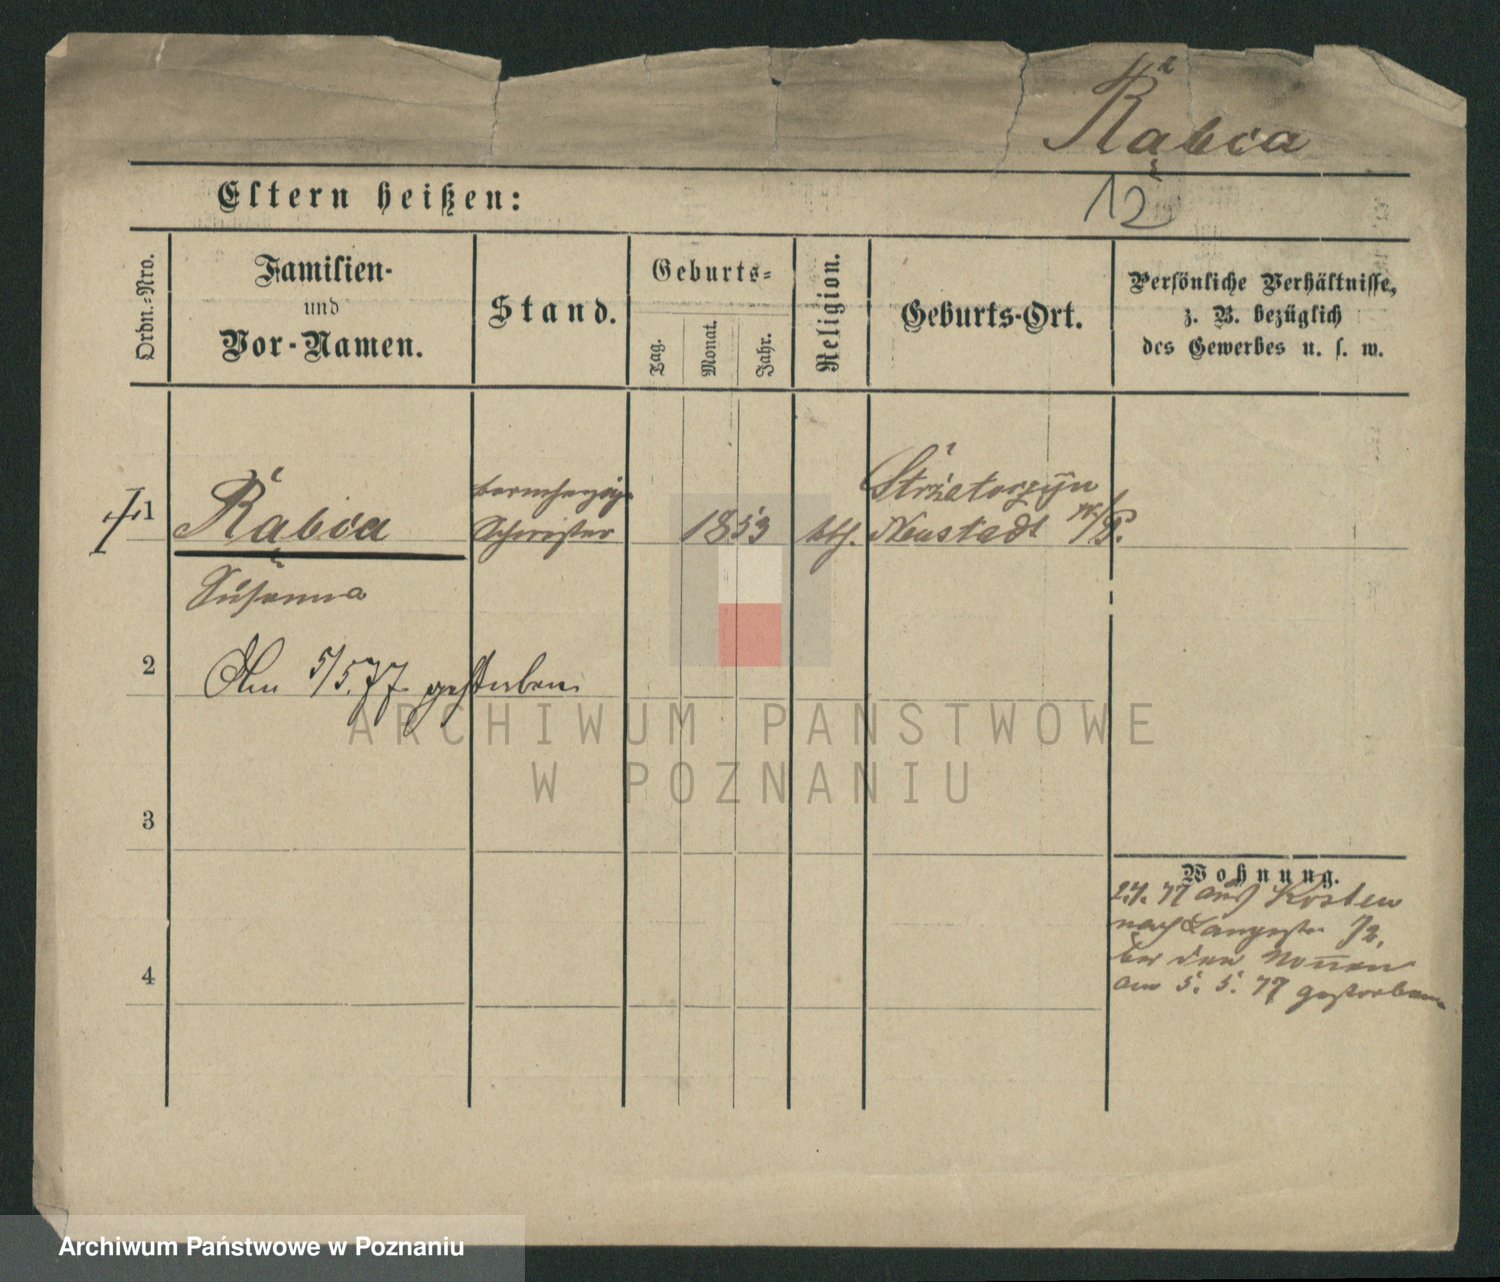 Rąbca
12
Eltern heißen:
Ordn.-Nro.
Familien-
und
Vor-Namen.
Stand.
Geburts-
Tag.
Monat.
Jahr.
Religion.
Geburts-Ort.
Persönliche Verhältnisse,
z. B. bezüglich
des Gewerbes u. s. w.
1
Rąbca
Susanna
barmherzige
Schwester
1853
kth.
Neustadt
2
Am 5/5.77 gestorben
3
4
Wohnung.
aus Kosten
nach Langestr
bei den Nonnen
am 5. 5. 77 gestorben
ARCHIWUM PAŃSTWOWE
W POZNANIU
Archiwum Państwowe w Poznaniu